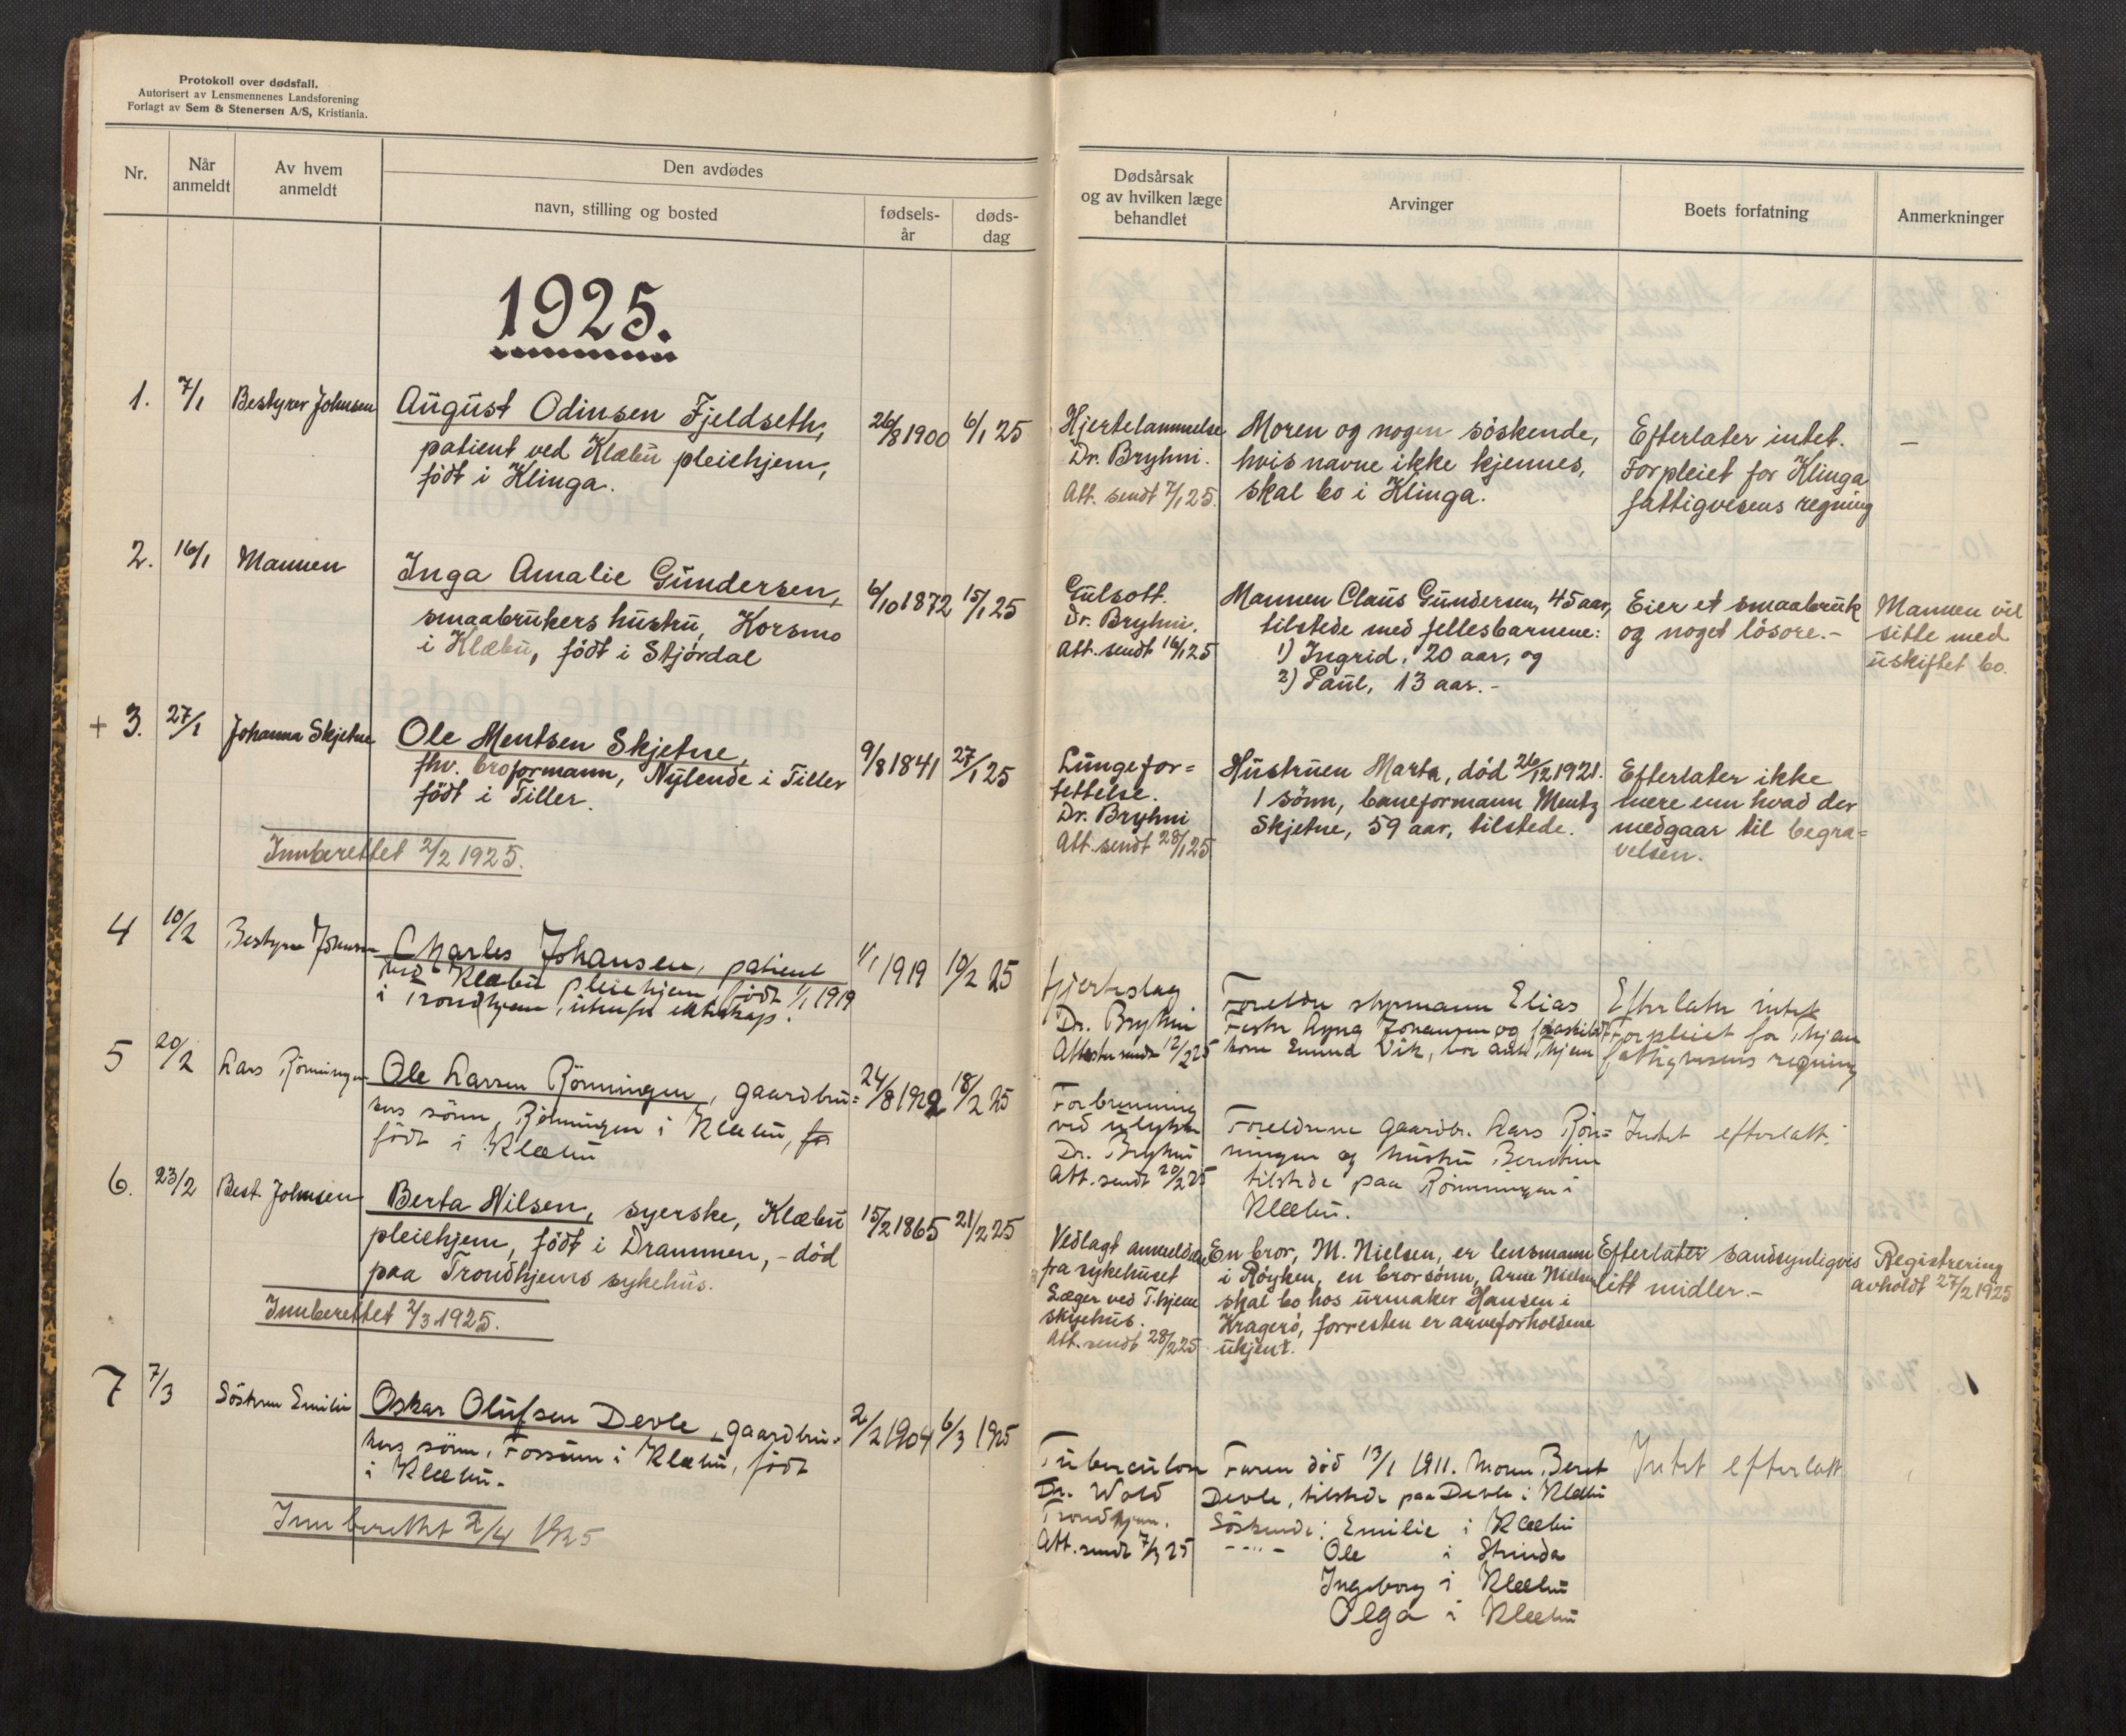 Protokoll over dødsfall.
Autorisert av Lensmennenes Landsforening
Forlagt av Sem & Stenersen A/S, Kristiania.
Nr.
Når
anmeldt
Av hvem
anmeldt
Den avdødes
navn, stilling og bosted
fødsels-
år
døds-
dag
1925.
1.
7/1
Bestyrer Johnsen
August Odinsen Fjeldseth,
patient ved Klæbu pleiehjem,
født i Klinga.
26/8 1900
6/1 25
2.
16/1
Mannen
Inga Amalie Gundersen,
smaabrukers hustru, Korsmo
i Klæbu, født i Stjørdal
6/10 1872
15/1 25
+ 3.
27/1
Johanna Skjetne
Ole Mentsen Skjetne,
fhv. broformann, Nylende i Tiller
født i Tiller.
9/8 1841
27/1 25
Innberettet 2/2 1925.
4
10/2
Bestyrer Johnsen
Charles Johansen, patient
ved Klæbu pleiehjem, født 1/1 1919
i Trondhjem, utenfor ekteskap.
1/1 1919
10/2 25
5
20/2
Lars Rönningen
Ole Larsen Rönningen, gaardbru=
kers sönn, Rönningen i Klæbu, for
födt i Klæbu
24/8 1922
18/2 25
6.
23/2
Best. Johnsen
Berta Nilsen, syerske, Klæbu
pleiehjem, født i Drammen, - død
paa Trondhjems sykehus.
15/2 1865
21/2 25
Innberettet 2/3 1925.
7
7/3
Söstren Emilie
Oskar Olufsen Devle, gaardbru=
kers sönn, Fossum i Klæbu, födt
i Klæbu.
2/2 1904
6/3 1925
Innberettet 2/4 1925
Dødsårsak
og av hvilken læge
behandlet
Arvinger
Boets forfatning
Anmerkninger
Hjertelammelse
Dr. Bryhni.
Att. sendt 7/1 25.
Moren og nogen söskende,
hvis navne ikke kjennes,
skal bo i Klinga.
Efterlater intet.
Forpleiet for Klinga
fattigvesens regning
—
Gulsott.
Dr. Bryhni.
Att. sendt 16/1 25
Mannen Claus Gundersen, 45 aar,
tilstede med fellesbarnene:
1) Ingrid, 20 aar, og
2) Paul, 13 aar. -
Eier et smaabruk
og noget lösöre. -
Mannen vil
sitte med
uskiftet bo.
Lungefor=
tettelse.
Dr. Bryhni
Att. sendt 28/1 25
Hustruen Marta, död 26/12 1921.
1 sönn, baneformann Mentz
Skjetne, 59 aar, tilstede.
Efterlater ikke
mere enn hvad der
medgaar til begra=
velsen.
Hjerteslag
Dr. Bryhni
Attester sendt 12/2 25
Foreldre styrmann Elias
Johansen og fraskilt
kone Emma Vik,
Efterlater intet
Forpleiet for Thjem
fattigvesens regning
Forbrenning
ved ulykke
Dr. Bryhni
Att. sendt 20/2 25
Foreldrene Gaardbr. Lars Rön=
ningen og hustru
tilstede paa Rönningen i
Klæbu.
Intet efterlatt.
Vedlagt anmeldelse
fra sykehuset
Læger ved T.hjem
sykehus.
Att. sendt 28/2 25
En bror, M. Nielsen, er lensmann
i Röyken, en brorsönn, Arne Nielsen
skal bo hos urmaker Hansen i
Kragerö, forresten er arveforholdene
ukjent.
Efterlater sandsynligvis
litt midler. -
Registrering
avholdt 27/2 1925
Tuberculose
Dr. Wold
Trondhjem.
Att. sendt 7/3 25
Faren död 13/1 1911. Moren Beret
Devle, tilstede paa Devle i Klæbu
Söskende: Emilie i Klæbu
- " - Ole i Strinda
Ingeborg i Klæbu
Olga i Klæbu
Intet efterlatt